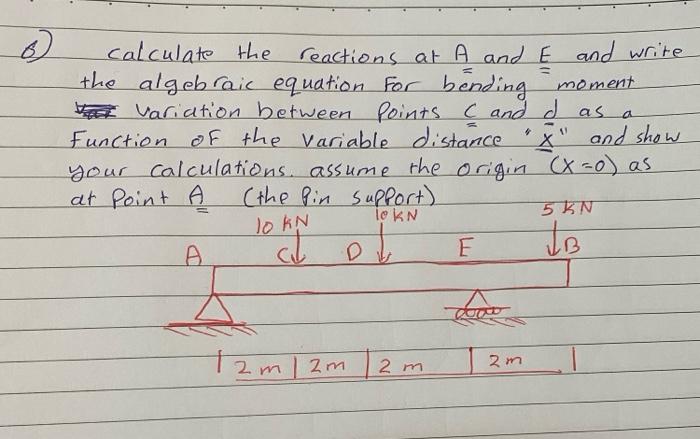 B) calculate the reactions at A and E and write
the algebraic equation For bending moment
variation between Points C and d as a
Function oF the variable distance "X" and show
your calculations. assume the origin (X=0) as
at Point A (the Pin support)
10 KN 10 KN 5 KN
A C D E B
2m 2m 2m 2m